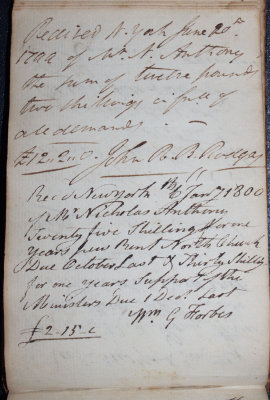 Received N. York June 20th
1799 of Mr. N. Anthony
the sum of twelve pounds
two shillings in full of
all demands.
£12..2..0. John R. B. Rodgers
Rec'd New York 16 Jany 1800
of Mr Nicholas Anthony
Seventy five Shillings for one
years pew Rent North Church
Due October Last & Thirty Shillings
for one years Support of the
Ministers Due 1 Decr Last
Wm G Forbes
£2-15-